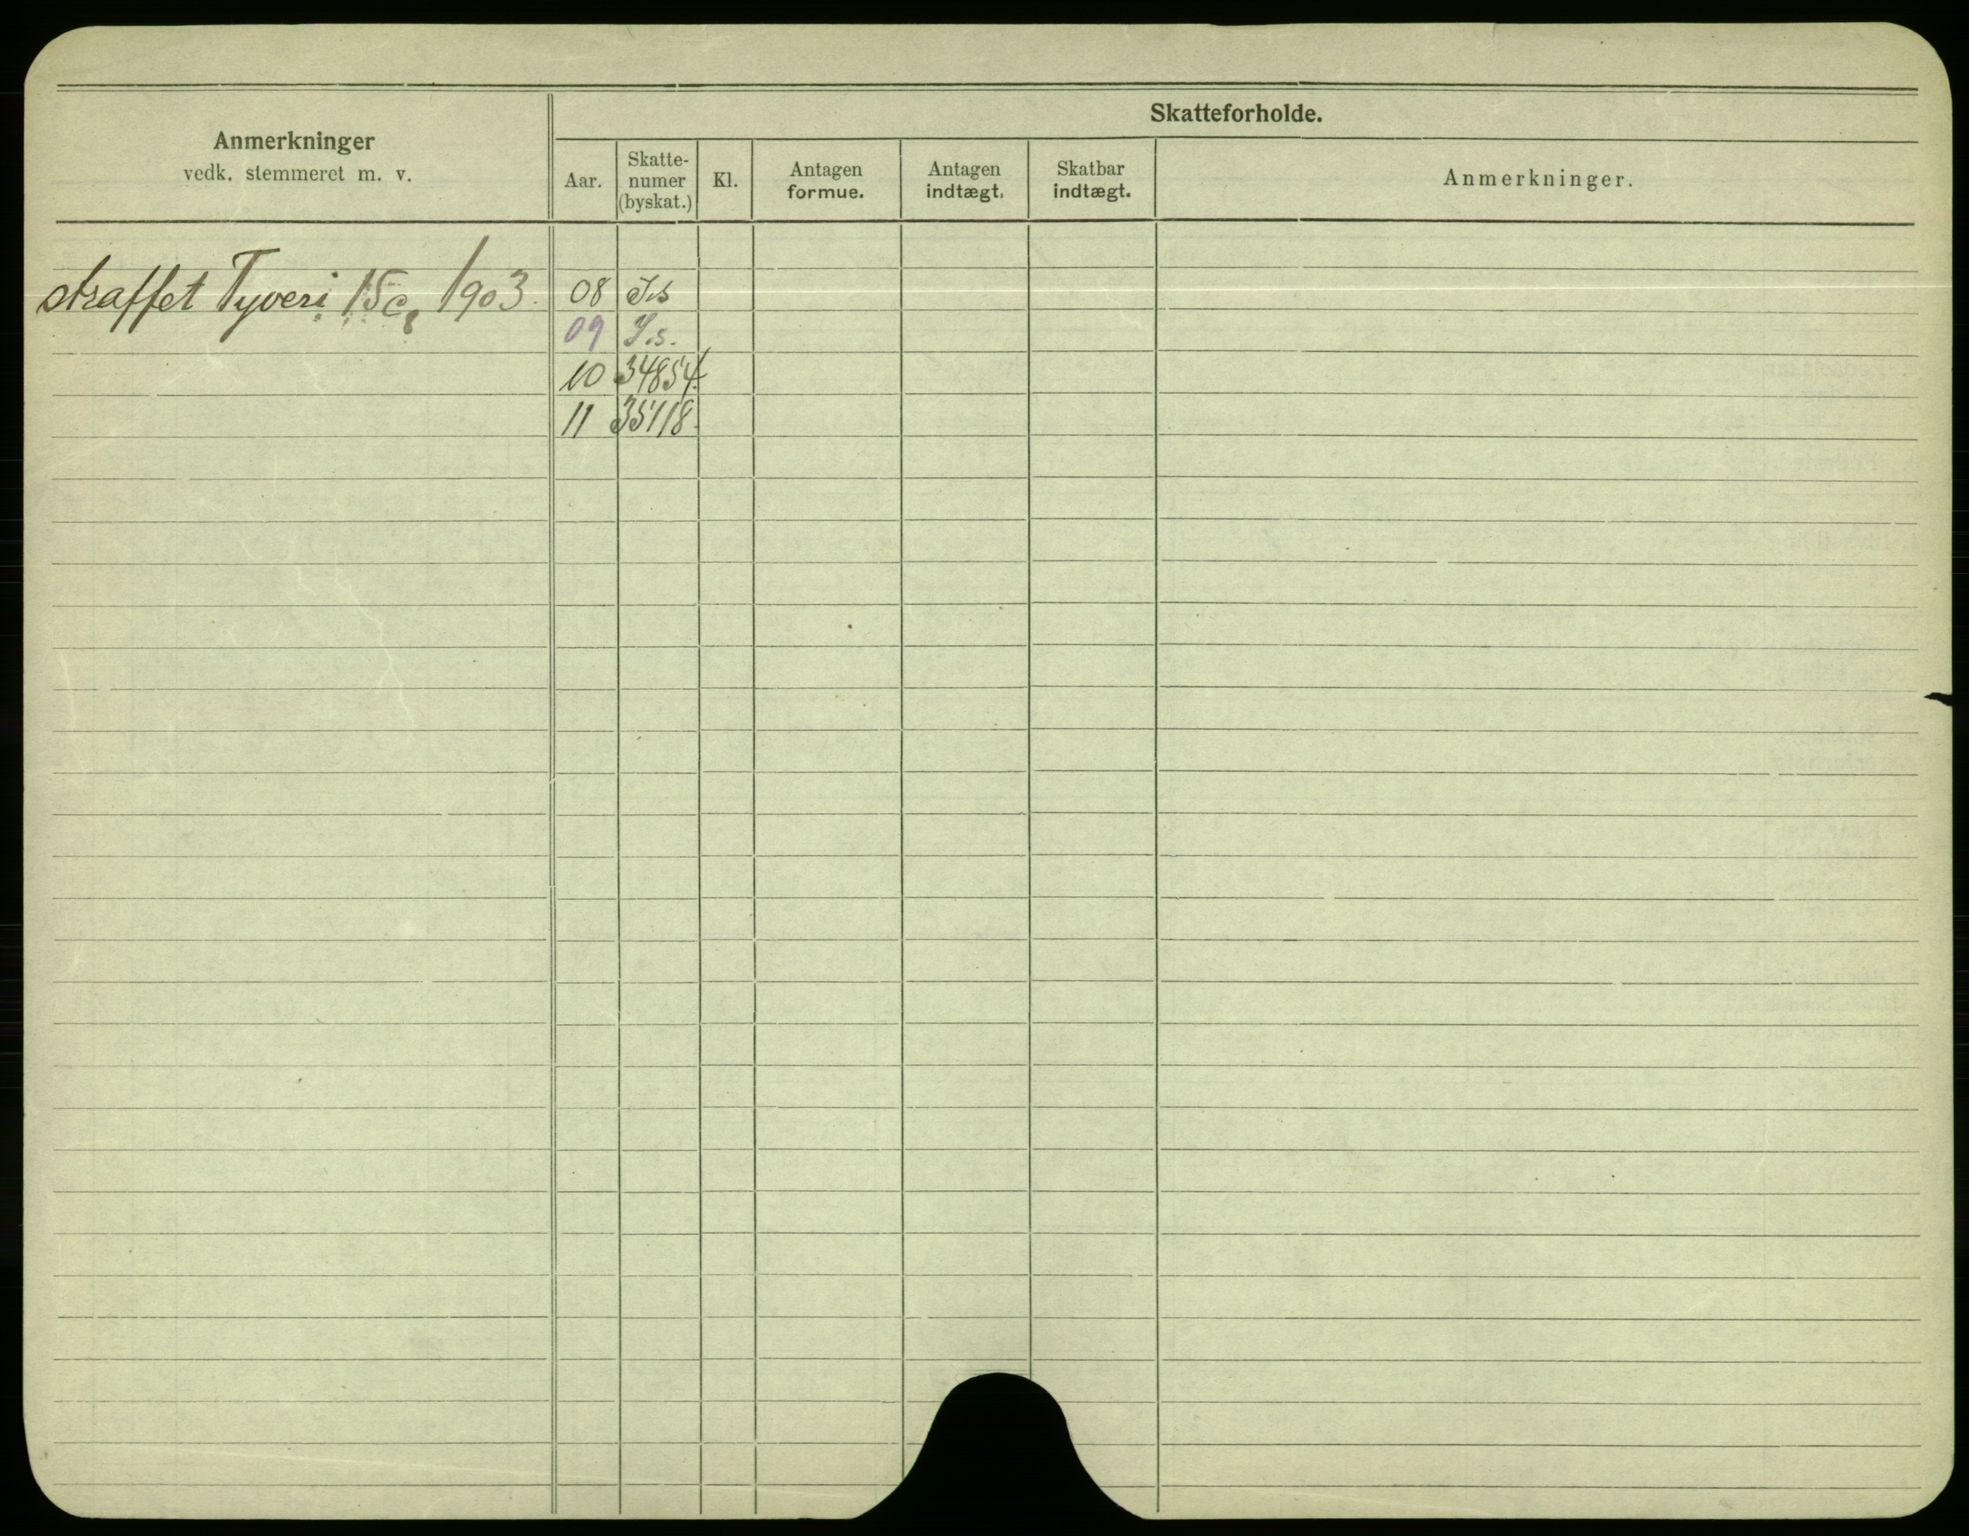 Anmerkninger
vedk. stemmeret m. v.
Skatteforholde.
Aar.
Skatte-
numer
(byskat.)
Kl.
Antagen
formue.
Antagen
indtægt.
Skatbar
indtægt.
Anmerkninger.
straffet Tyveri 1903.
08 I.s
09 I.s.
10 34854
11 35118